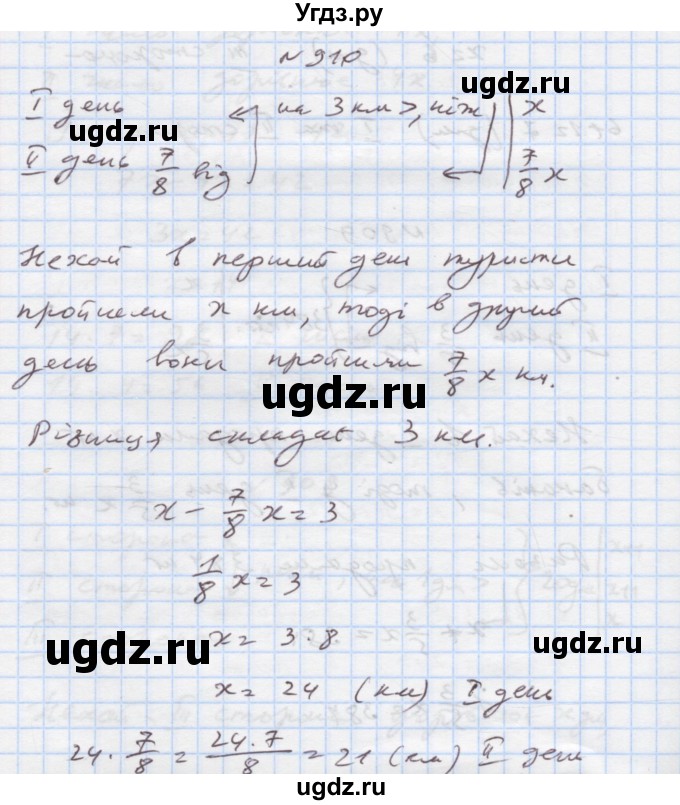 Угдз.ру
№ 910
I день на 3 км >, ніж x
ugdz.ru ugdz.ru
II день 7/8 від 7/8 x
Нехай в перший день туристи
пройшли x км, тоді в другий
день вони пройшли 7/8 x км.
ugdz.ru
Різниця складає 3 км.
x - 7/8 x = 3
ugdz.ru
1/8 x = 3
x = 3 · 8
ugdz.ru ugdz.ru
x = 24 (км) I день
24 · 7/8 = 24·7/8 = 21 (км) II день
ugdz.ru